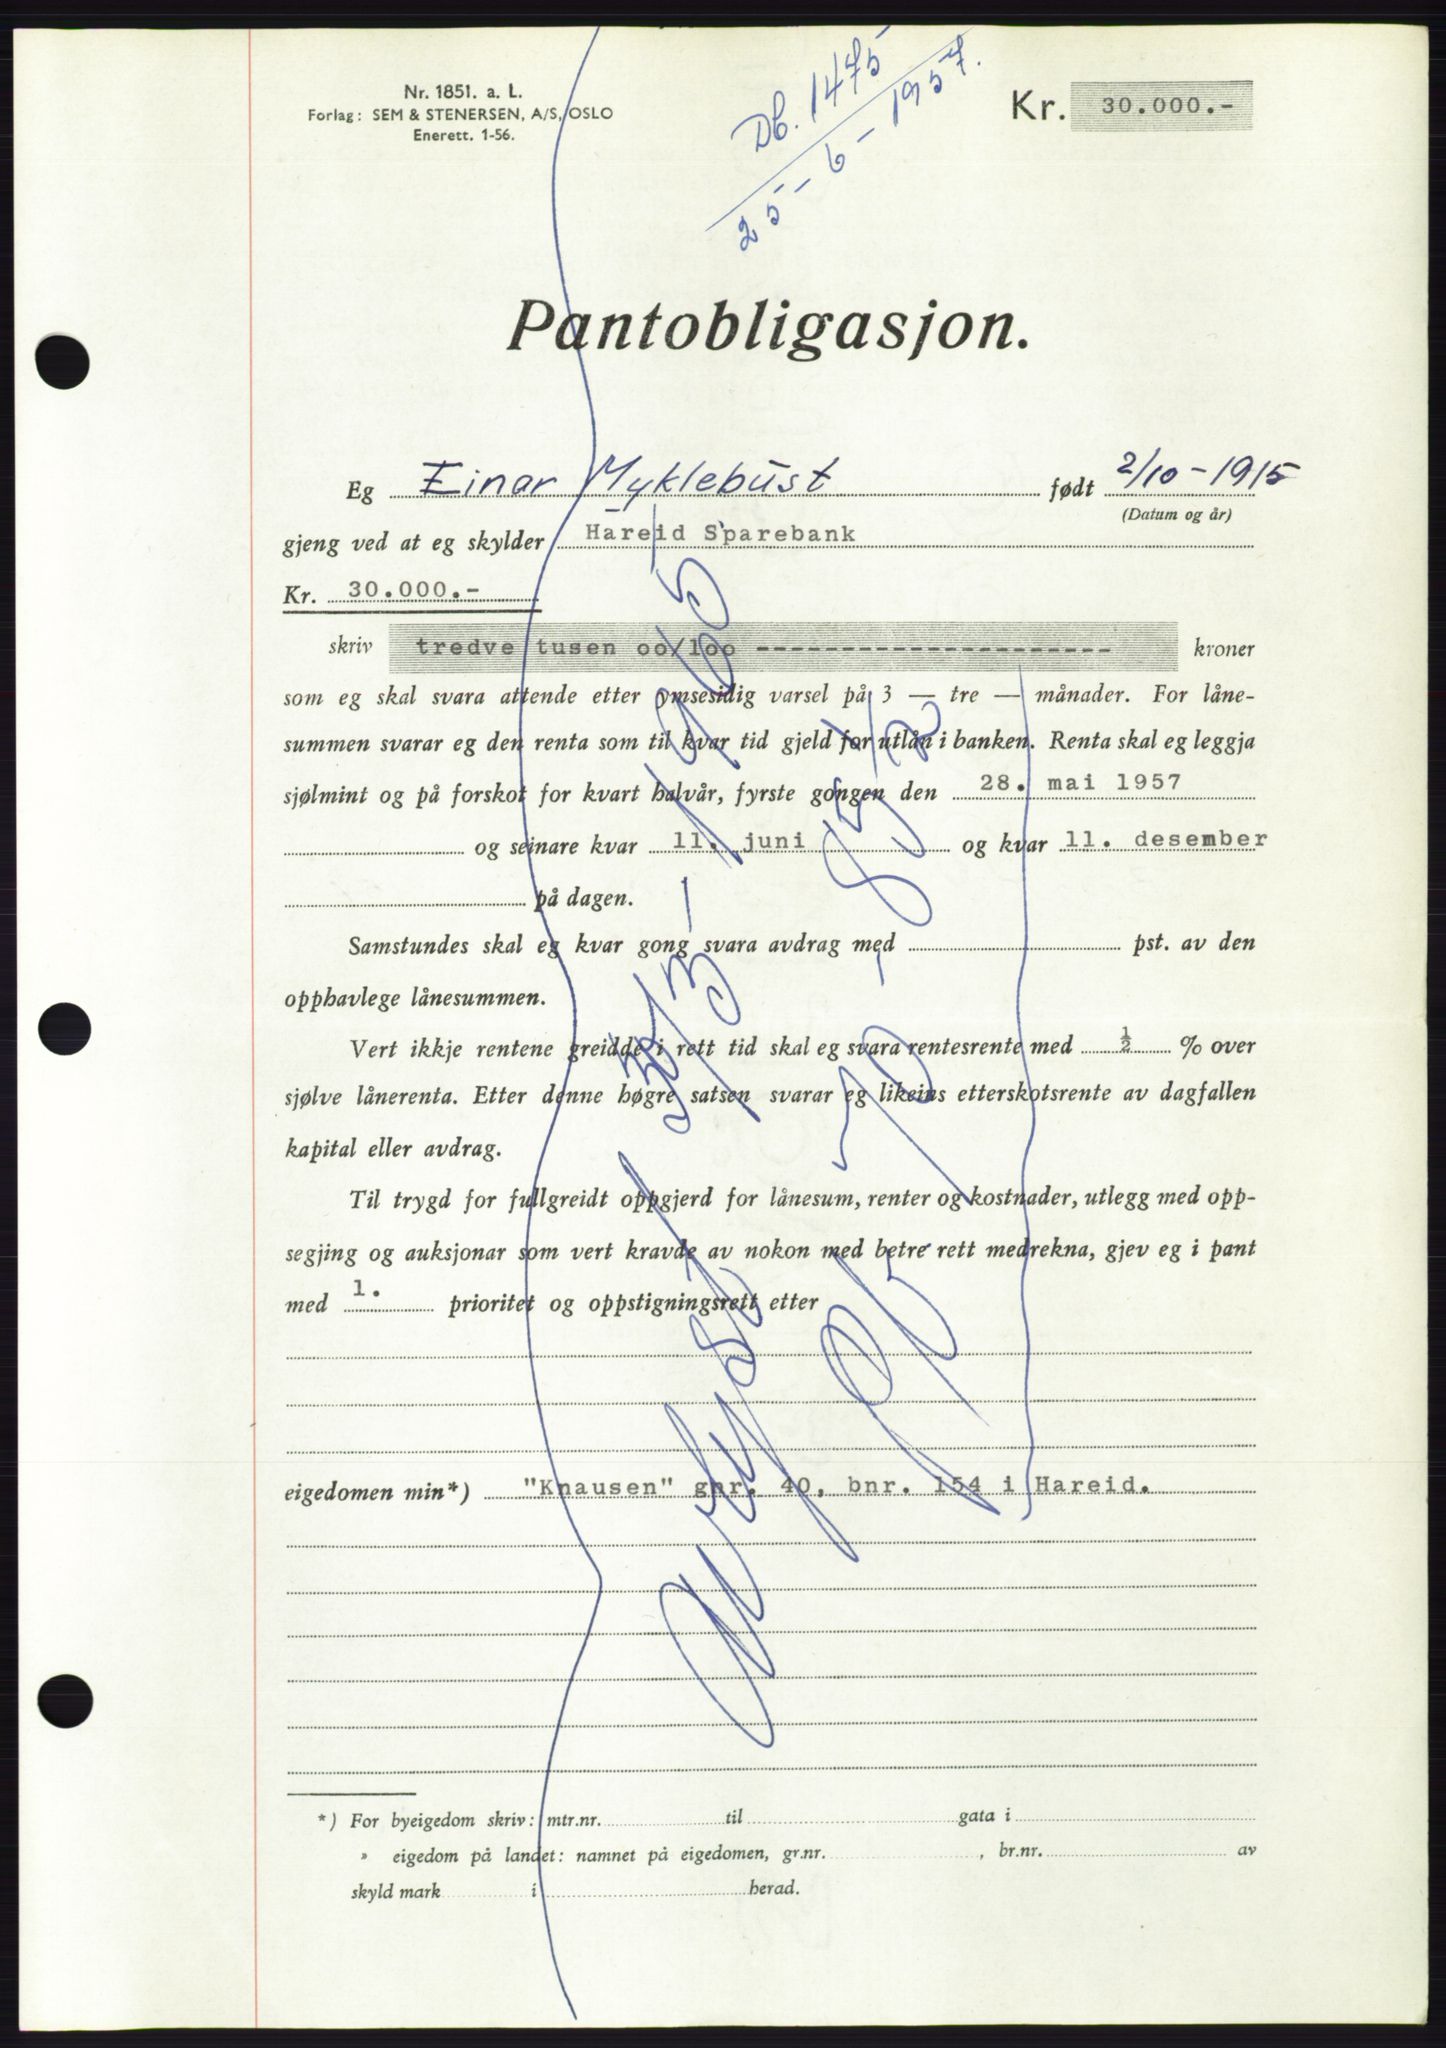 Nr. 1851. a. L.
Forlag: SEM & STENERSEN, A/S, OSLO
Enerett. 1-56.
Db. 1475
25-6-1957.
Kr. 30.000.-
Pantobligasjon.
Eg Einar Myklebust født 2/10-1915
(Datum og år)
gjeng ved at eg skylder Hareid Sparebank
Kr. 30.000.-
skriv tredve tusen oo/loo --------------------- kroner
som eg skal svara attende etter ymsesidig varsel på 3 — tre — månader. For låne-
summen svarar eg den renta som til kvar tid gjeld for utlån i banken. Renta skal eg leggja
sjølmint og på forskot for kvart halvår, fyrste gongen den 28. mai 1957
og seinare kvar 11. juni og kvar 11. desember
på dagen.
Samstundes skal eg kvar gong svara avdrag med pst. av den
opphavlege lånesummen.
Vert ikkje rentene greidde i rett tid skal eg svara rentesrente med ½ % over
sjølve lånerenta. Etter denne høgre satsen svarar eg likeins etterskotsrente av dagfallen
kapital eller avdrag.
Til trygd for fullgreidt oppgjerd for lånesum, renter og kostnader, utlegg med opp-
segjing og auksjonar som vert kravde av nokon med betre rett medrekna, gjev eg i pant
med 1. prioritet og oppstigningsrett etter
eigedomen min*) "Knausen" gnr. 40, bnr. 154 i Hareid.
Avlyst 30/3-1965
*) For byeigedom skriv: mtr.nr. til gata i
» eigedom på landet: namnet på eigedomen, gr.nr. , br.nr. av
skyld mark i herad.